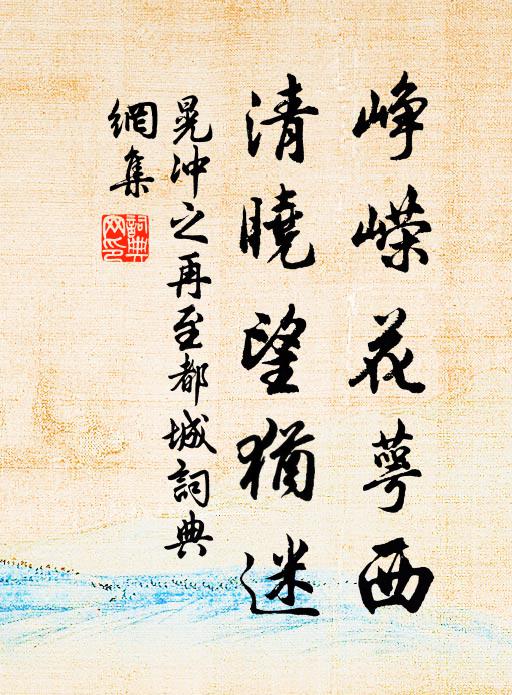 峥嵘花萼西
清曉望猶迷
晁冲之再至都城詞典
網集
詞典
网印